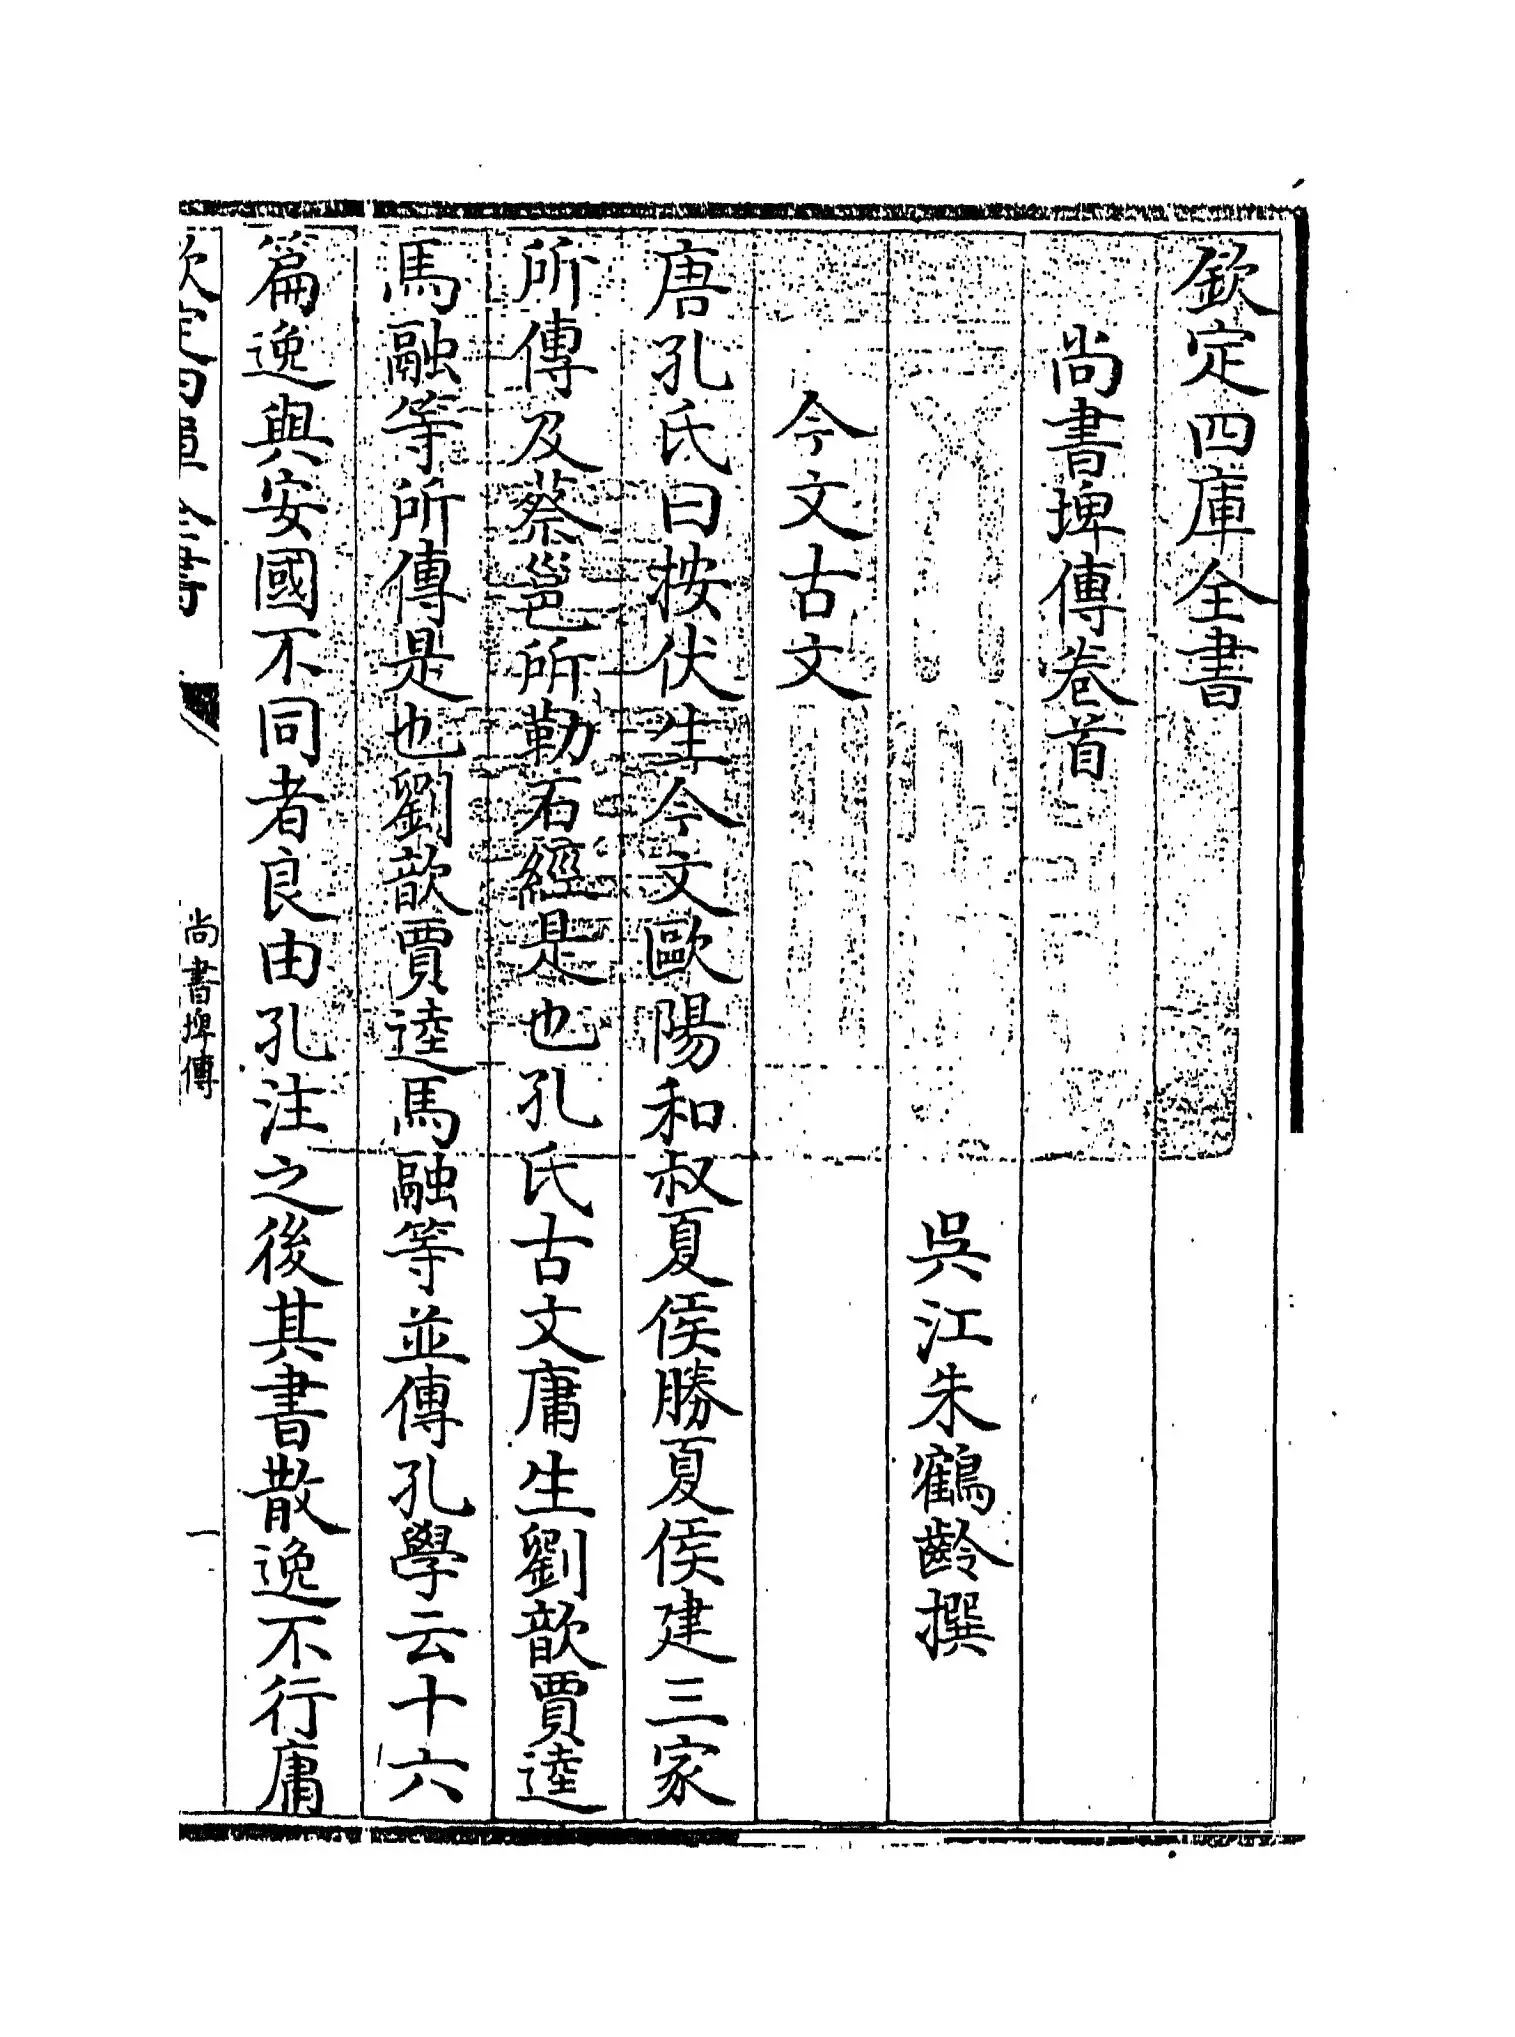 欽定四庫全書
尚書埤傳卷首
吳江朱鶴齡撰
今文古文
唐孔氏曰按伏生今文歐陽和叔夏侯勝夏侯建三家
所傳及蔡邕所勒石經是也孔氏古文庸生劉歆賈逵
馬融等所傳是也劉歆賈逵馬融等並傳孔學云十六
篇逸與安國不同者良由孔注之後其書散逸不行庸
欽定四庫全書
尚書埤傳
一